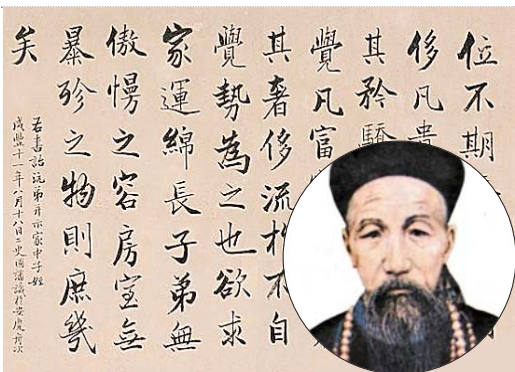 位不期
侈凡貴
其矜驕
覺凡富
其奢侈流於不自
覺勢為之也欲求
家運綿長子弟無
傲慢之容房室無
暴殄之物則庶幾
矣
右書詒沅弟并示家中子姪
咸豐十一年八月十八日二更國藩識於安慶舟次